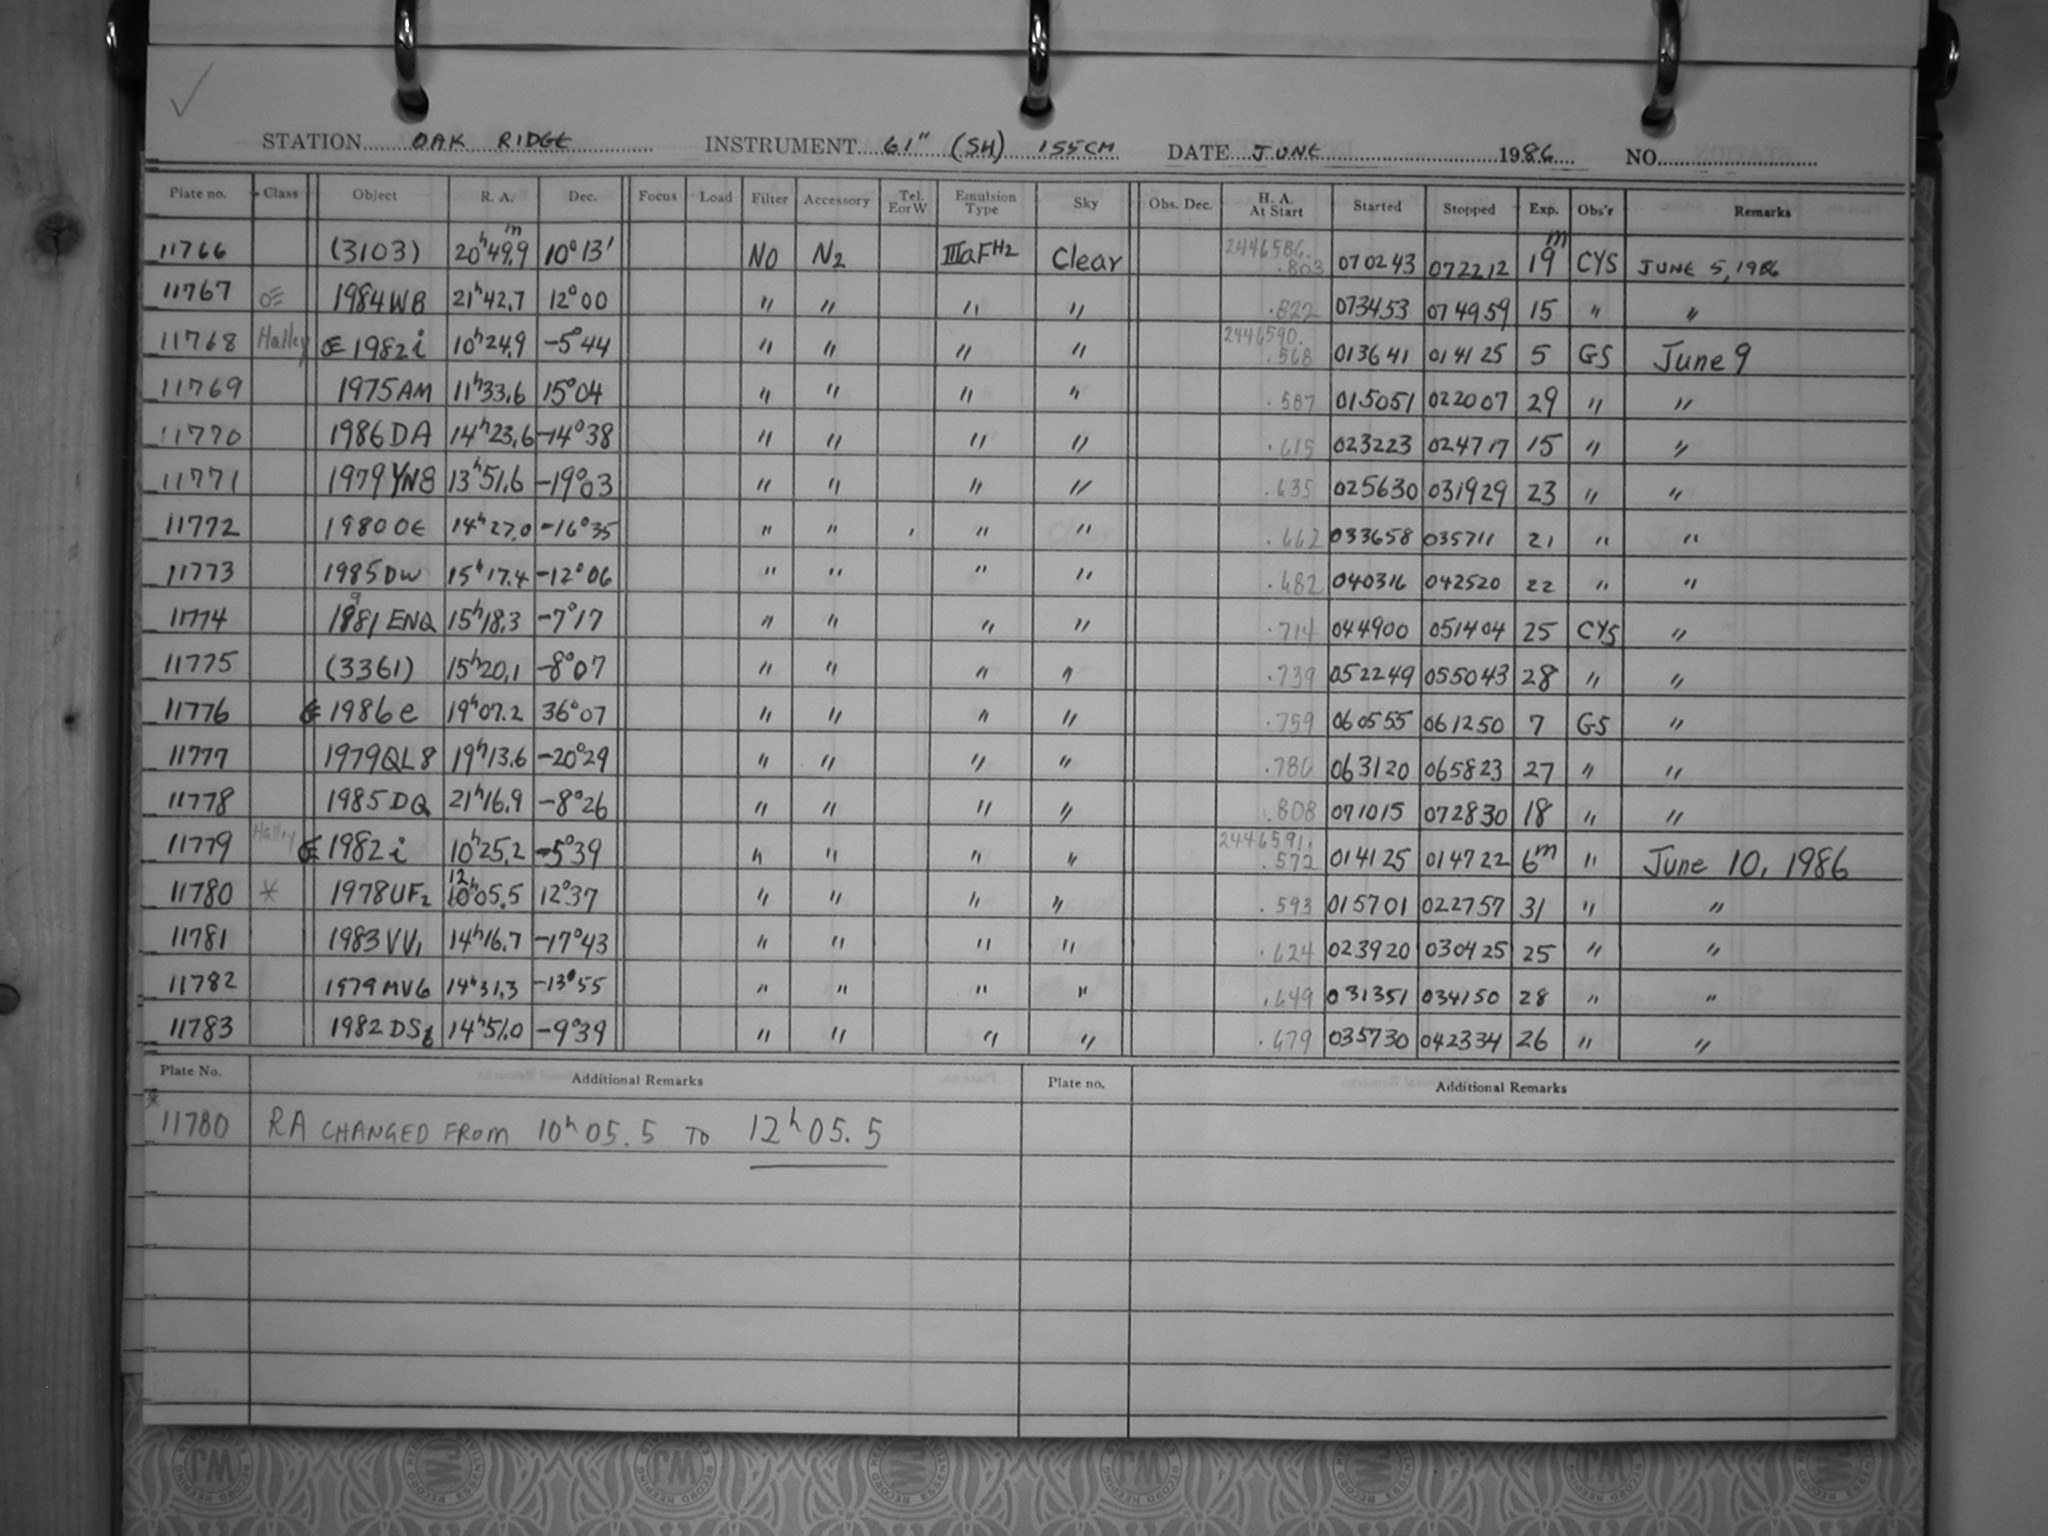 STATION OAK RIDGE INSTRUMENT 61" (SH) 155CM DATE JUNE 1986 NO.
Plate no. Class Object R. A. Dec. Focus Load Filter Accessory Tel. E or W Emulsion Type Sky Obs. Dec. H. A. At Start Started Stopped Exp. Obs'r Remarks
11766 (3103) 20h49.9m 10°13' NO N2 IIIaFH2 Clear 2446586. .803 070243 072212 19m CYS JUNE 5, 1986
11767 1984WB 21h42.7 12°00 " " " " .822 073453 074959 15 " "
11768 Halley 1982i 10h24.9 -5°44 " " " " 2446590. .568 013641 014125 5 GS June 9
11769 1975AM 11h33.6 15°04 " " " " .587 015051 022007 29 " "
11770 1986DA 14h23.6 -14°38 " " " " .615 023223 024717 15 " "
11771 1979YN8 13h51.6 -19°03 " " " " .635 025630 031929 23 " "
11772 1980OE 14h27.0 -16°35 " " " " .662 033658 035711 21 " "
11773 1985DW 15h17.4 -12°06 " " " " .682 040316 042520 22 " "
11774 1981ENQ 15h18.3 -7°17 " " " " .714 044900 051404 25 CYS "
11775 (3361) 15h20.1 -8°07 " " " " .739 052249 055043 28 " "
11776 1986e 19h07.2 36°07 " " " " .759 060555 061250 7 GS "
11777 1979QL8 19h13.6 -20°29 " " " " .786 063120 065823 27 " "
11778 1985DQ 21h16.9 -8°26 " " " " .808 071015 072830 18 " "
11779 Halley 1982i 10h25.2 -5°39 " " " " 2446591. .572 014125 014722 6m " June 10, 1986
11780 * 1978UF2 12 10h05.5 12°37 " " " " .593 015701 022757 31 " "
11781 1983VV1 14h16.7 -17°43 " " " " .624 023920 030425 25 " "
11782 1979MV6 14h31.3 -13°55 " " " " .649 031351 034150 28 " "
11783 1982DS6 14h51.0 -9°39 " " " " .679 035730 042334 26 " "
Plate No. Additional Remarks Plate no. Additional Remarks
* 11780 RA CHANGED FROM 10h05.5 TO 12h05.5